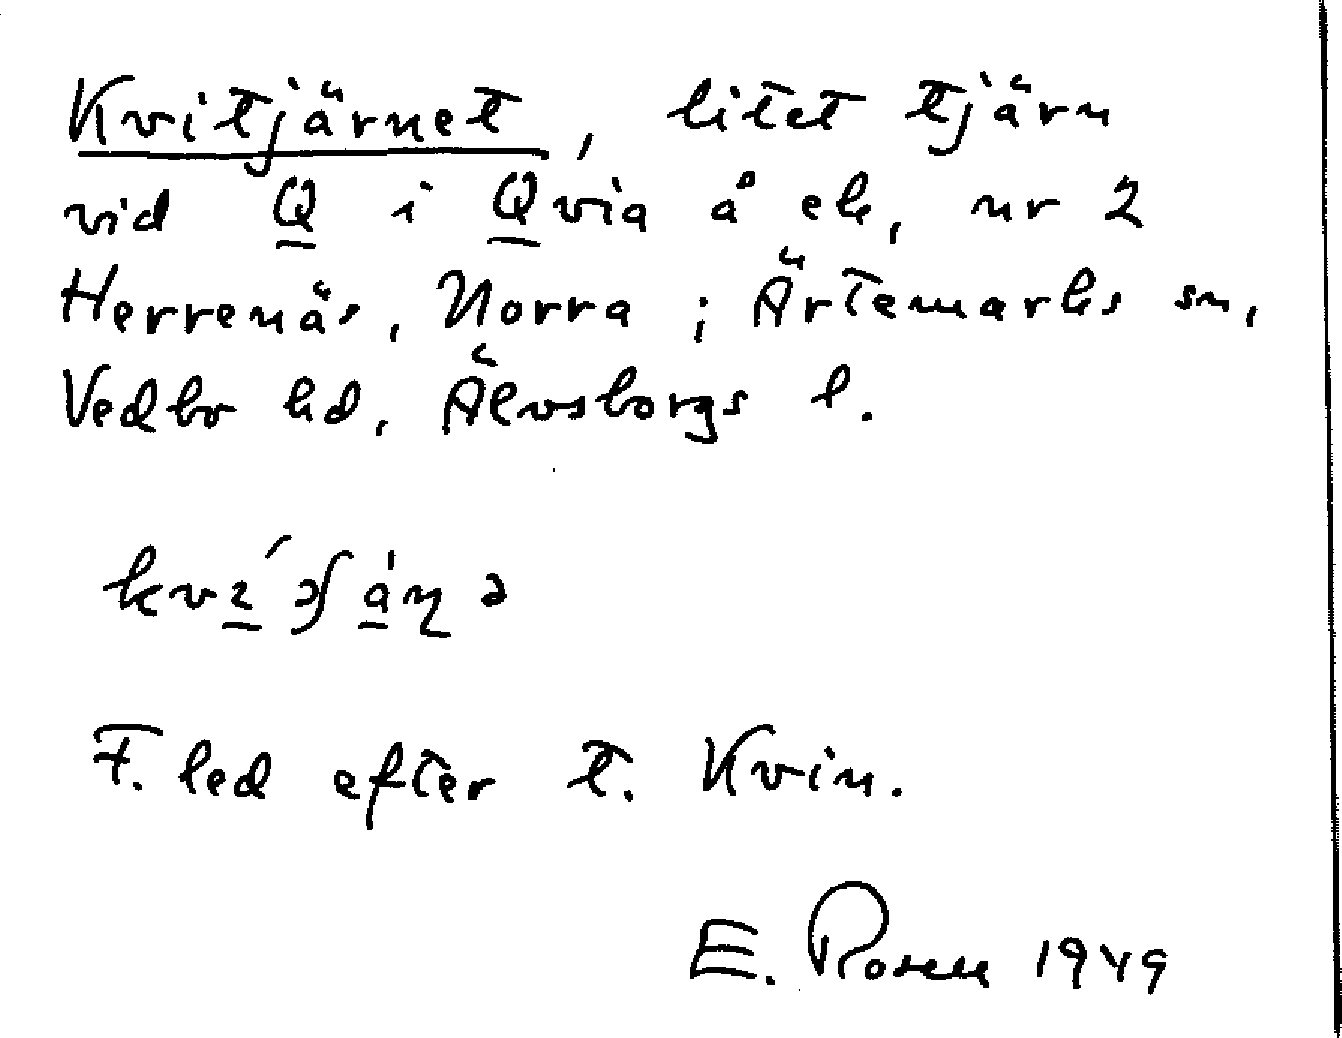 Kvitjärnet, litet tjärn
vid Q i Qvia å ek, nr 2
Herrenäs, Norra i Ärtemarks sn,
Vedbo hd, Älvsborgs l.
F. led efter t. Kvin.
E. Rosen 1949